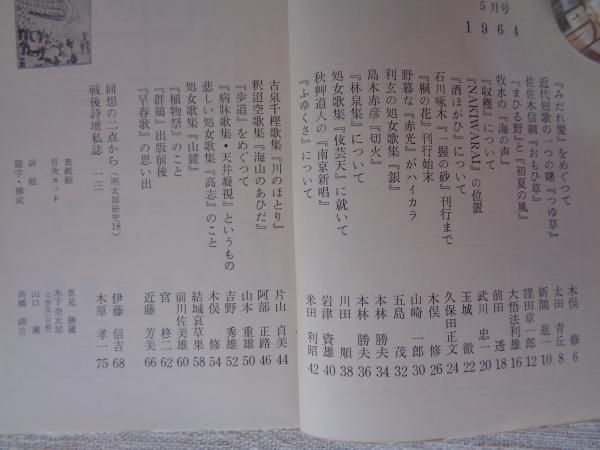 5月号
1964
『みだれ髪』をめぐつて 木俣 修 6
近代短歌の一つの曙『つゆ草』 太田 青丘 8
佐佐木信綱『おもひ草』 新間 進一 10
『まひる野』と『初夏の風』 窪田章一郎 12
牧水の『海の声』 大悟法利雄 16
『収穫』について 前田 透 18
『NAKIWARAI』の位置 武川 忠一 20
『酒ほがひ』について 玉城 徹 22
石川啄木『一握の砂』刊行まで 久保田正文 24
『桐の花』刊行始末 木俣 修 26
野暮な『赤光』がハイカラ 山崎 一郎 30
利玄の処女歌集『銀』 五島 茂 32
島木赤彦『切火』 本林 勝夫 34
『林泉集』について 本林 勝夫 36
処女歌集『伎芸天』に就いて 川田 順 38
秋艸道人の『南京新唱』 岩津 資雄 40
『ふゆくさ』について 米田 利昭 42
古泉千樫歌集『川のほとり』 片山 貞美 44
釈迢空歌集『海山のあひだ』 阿部 正路 46
『歩道』をめぐつて 山本 重雄 50
『病牀歌集・天井凝視』というもの 吉野 秀雄 52
悲しい処女歌集『高志』のこと 木俣 修 54
処女歌集『山麓』 結城哀草果 58
『植物祭』のこと 前川佐美雄 60
『群鶏』出版前後 宮 柊二 62
『早春歌』の思い出 近藤 芳美 66
回想の二点から(朔太郎研究18) 伊藤 信吉 68
戦後詩壇私誌 一三 木原 孝一 75
表紙絵 里見 勝蔵
目次カット 木下杢太郎
扉絵 山口 薫
題字・構成 高橋 錦吉